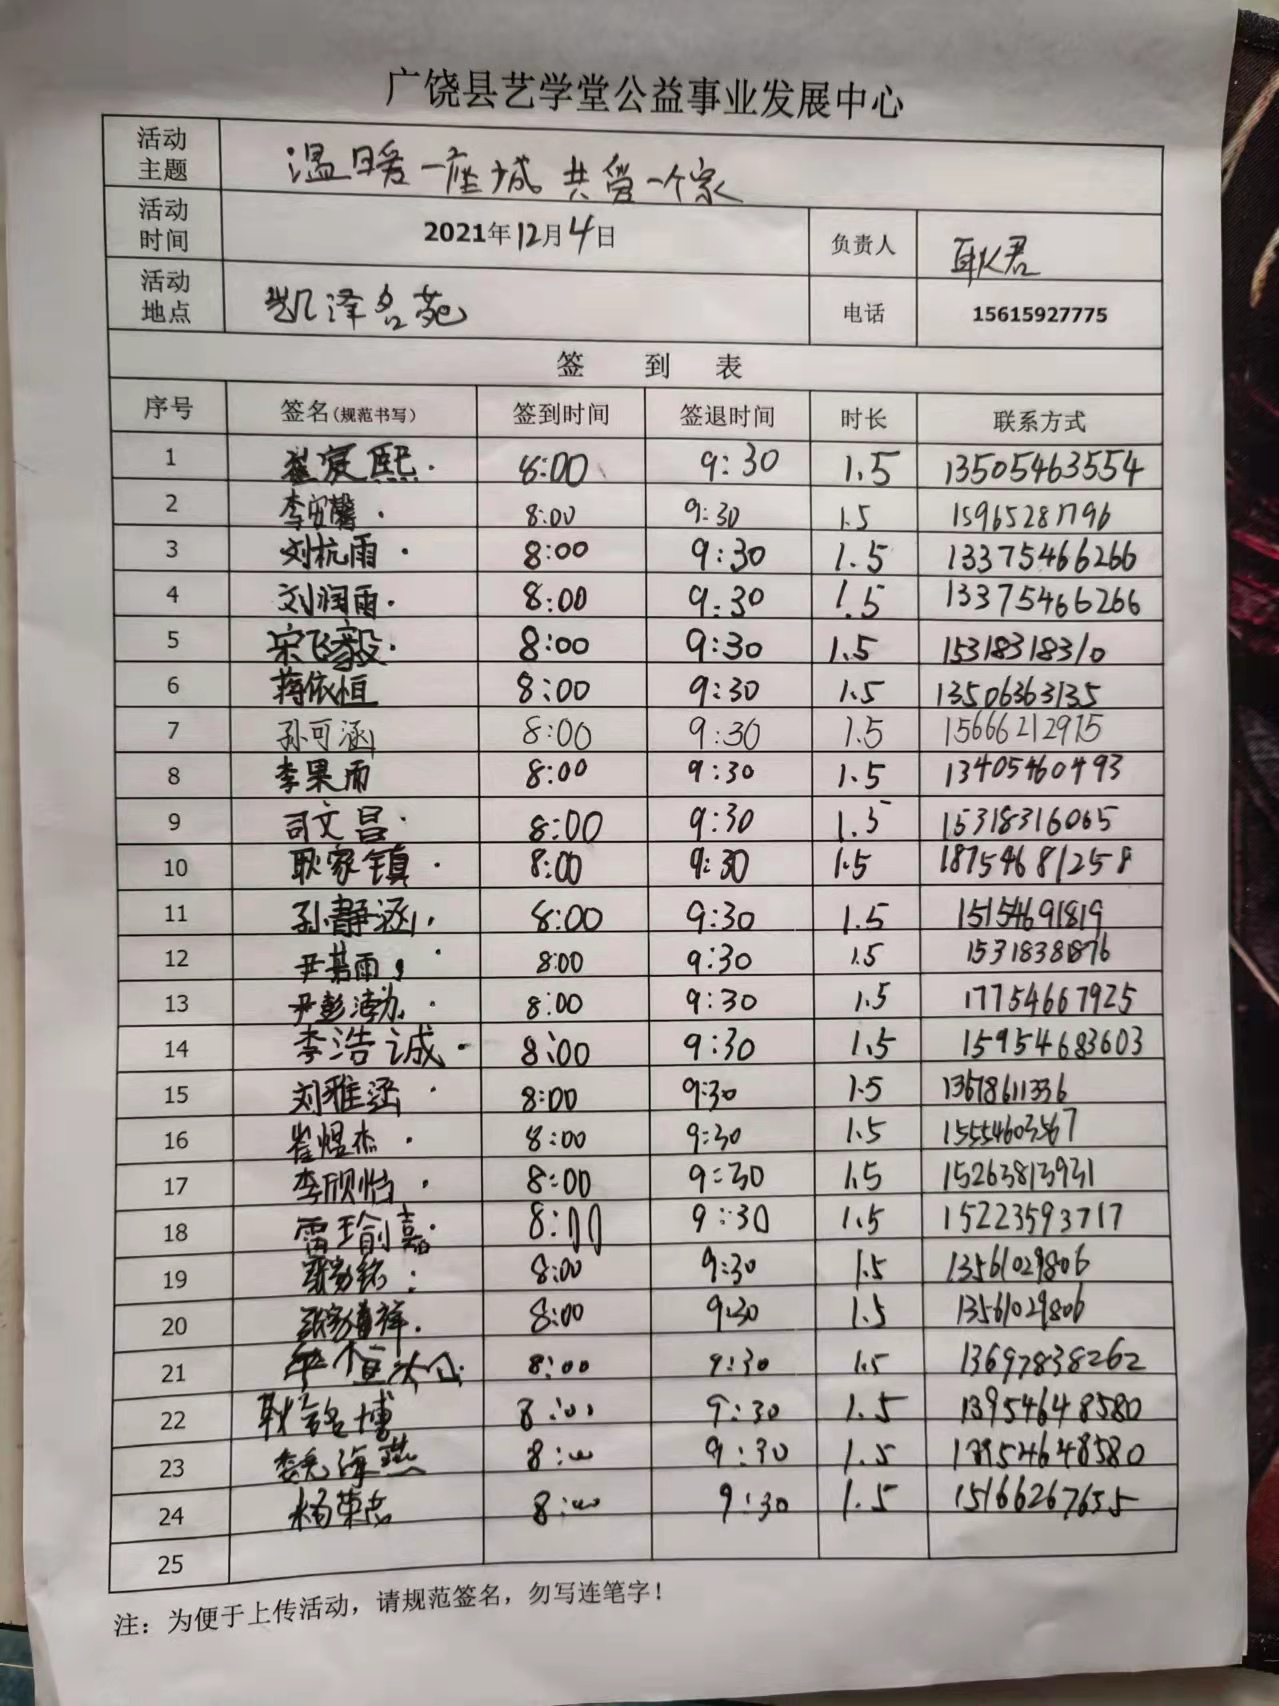 广饶县艺学堂公益事业发展中心
活动主题 温暖一座城 共爱一个家
活动时间 2021年12月4日 负责人 耿君
活动地点 凯泽名苑 电话 15615927775
签 到 表
序号 签名(规范书写) 签到时间 签退时间 时长 联系方式
1 崔宸熙. 8:00 9:30 1.5 13505463554
2 李安馨. 8:00 9:30 1.5 15965281796
3 刘杭雨. 8:00 9:30 1.5 13375466266
4 刘润雨. 8:00 9:30 1.5 13375466266
5 宋飞毅. 8:00 9:30 1.5 15318318310
6 蒋依恒 8:00 9:30 1.5 13506363135
7 孙可涵 8:00 9:30 1.5 15666212975
8 李果雨 8:00 9:30 1.5 13405460493
9 司文昌. 8:00 9:30 1.5 15318316065
10 耿家镇. 8:00 9:30 1.5 18754681258
11 孙静涵. 8:00 9:30 1.5 15154691819
12 尹若雨 8:00 9:30 1.5 15318381876
13 尹彭渤. 8:00 9:30 1.5 17754667925
14 李浩诚. 8:00 9:30 1.5 159954683603
15 刘雅涵. 8:00 9:30 1.5 13678611336
16 崔煜杰. 8:00 9:30 1.5 15554603567
17 李欣怡. 8:00 9:30 1.5 15263813931
18 雷瑜嘉. 8:00 9:30 1.5 15223593717
19 8:00 9:30 1.5 13561029806
20 8:00 9:30 1.5 13561029806
21 8:00 9:30 1.5 13697838262
22 耿铭博 8:00 9:30 1.5 13954648580
23 魏海燕 8:00 9:30 1.5 13954648580
24 杨荣志 8:00 9:30 1.5 15166267655
25
注：为便于上传活动，请规范签名，勿写连笔字！